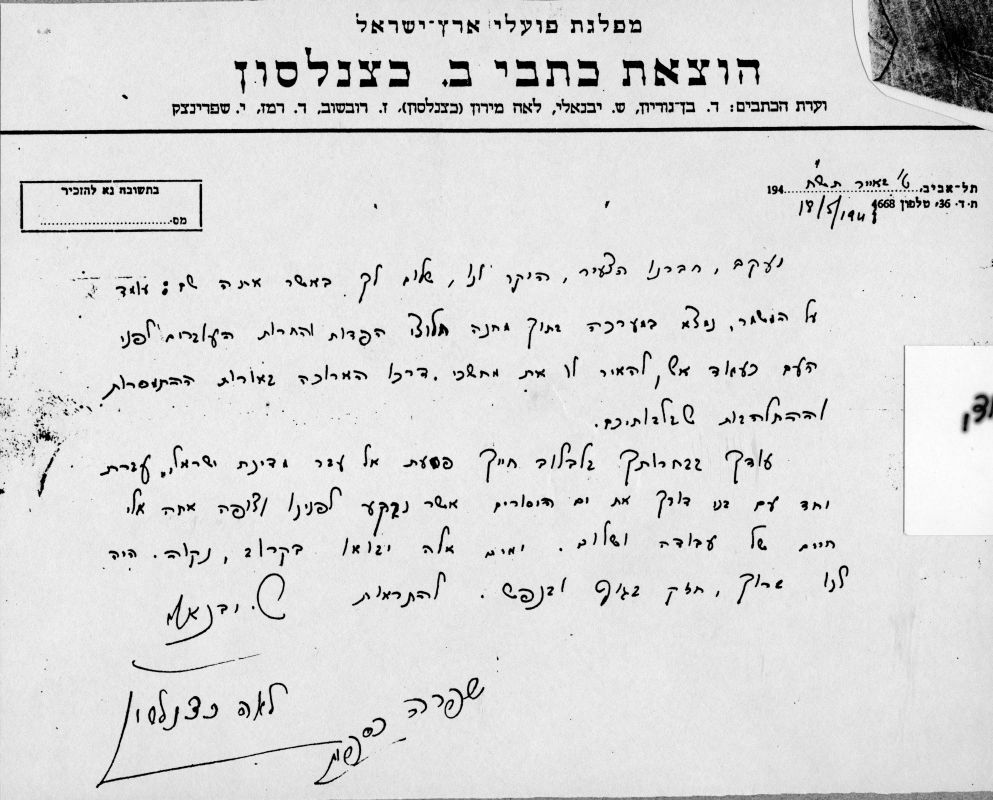 מפלגת פועלי ארץ־ישראל
הוצאת כתבי ב. כצנלסון
וערת הכתבים: ד. בן־גוריון, ש. יבנאלי, לאה מירון (כצנלסון), ז. רובשוב, ד. רמז, י. שפרינצק
תל־אביב, ט' באייר תש"ח 194
ת. ד. 36, טלפון 4668
18/5/1948
בתשובה נא להזכיר
מס.
יעקב, חברנו הצעיר, היקר לנו, שלום לך באשר אתה שם: עומד
על המשמר, נמצא במערכה בתוך מחנה חלוצי הפדות והחרות העוברים לפני
העם כעמוד אש, להאיר לו את מחשכי דרכו הארוכה באורות ההתמסרות
וההתלהבות שבלבותיכם.
עודך בבחרותך בלבלוב חייך פסעת אל עבר מדינת ישראל, עברת
יחד עם בני דורך את ים היסורים אשר נבקע לפנינו וצופה אתה אלי
חיים של עבודה ושלום. ימים אלה יבואו בקרוב, נקוה. היה
לנו ברוך, חזק בגוף ובנפש. להתראות ש. יבנאלי
לאה כצנלסון
שפרה